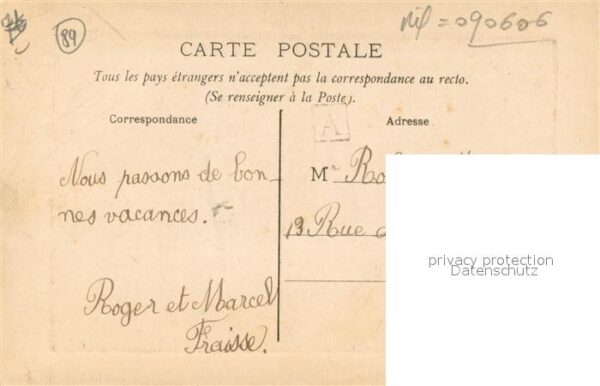 89
CARTE POSTALE
Tous les pays étrangers n'acceptent pas la correspondance au recto.
(Se renseigner à la Poste).
Correspondance
A
Adresse
Nous passons de bon-
nes vacances.
Roger et Marcel
Fraisse.
Mr
13 Rue
privacy protection
Datenschutz